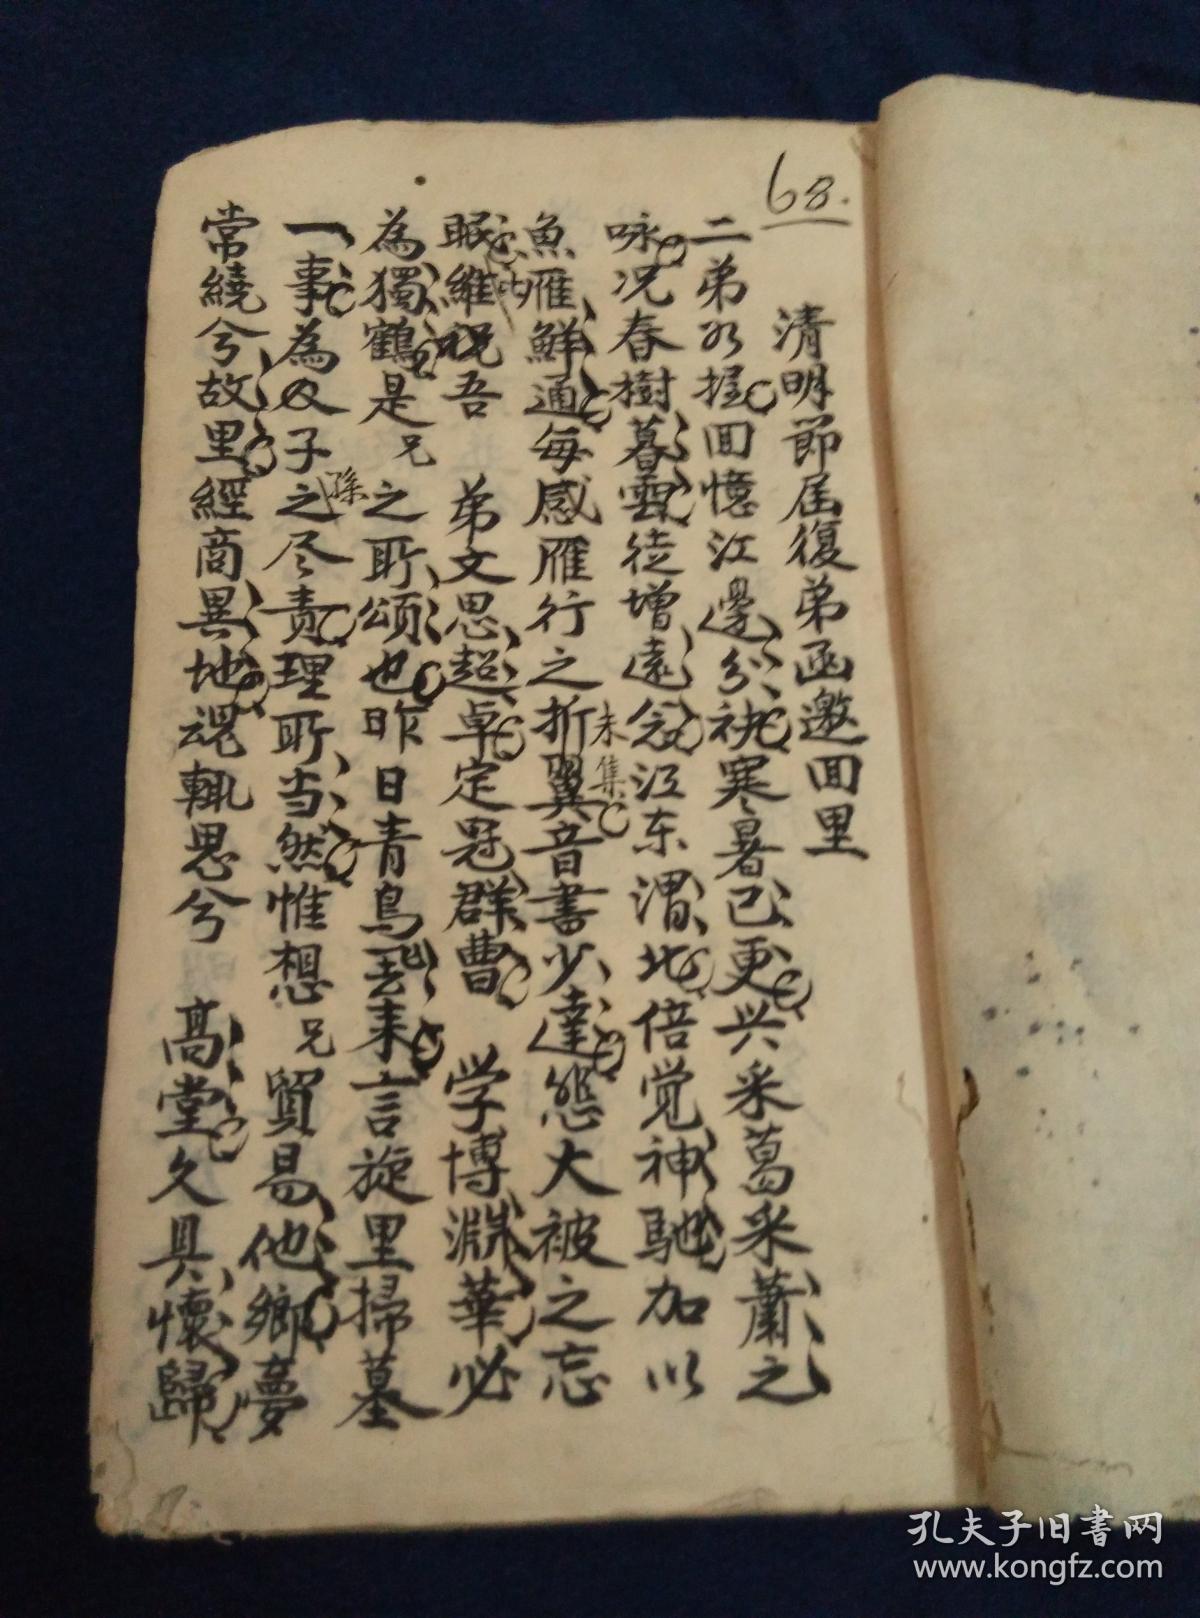 68.
清明節屆復弟函邀回里
二弟如握回憶江邊分袂寒暑已更兴采葛采蕭之
咏况春樹暮雲徒增遠念江东渭北倍觉神馳加以
魚雁鮮通每感雁行之折翼音書少達愁大被之忘
未集
眠維祝吾 弟文思超卓定冠群曹 学博淵華必
為獨鶴是兄之所頌也昨日青鳥飞来言旋里掃墓
一事為父子之尽责理所当然惟想兄貿易他鄉夢
孫
常繞兮故里經商異地魂輒思兮 高堂久具懷歸
孔夫子旧書网
www.kongfz.com